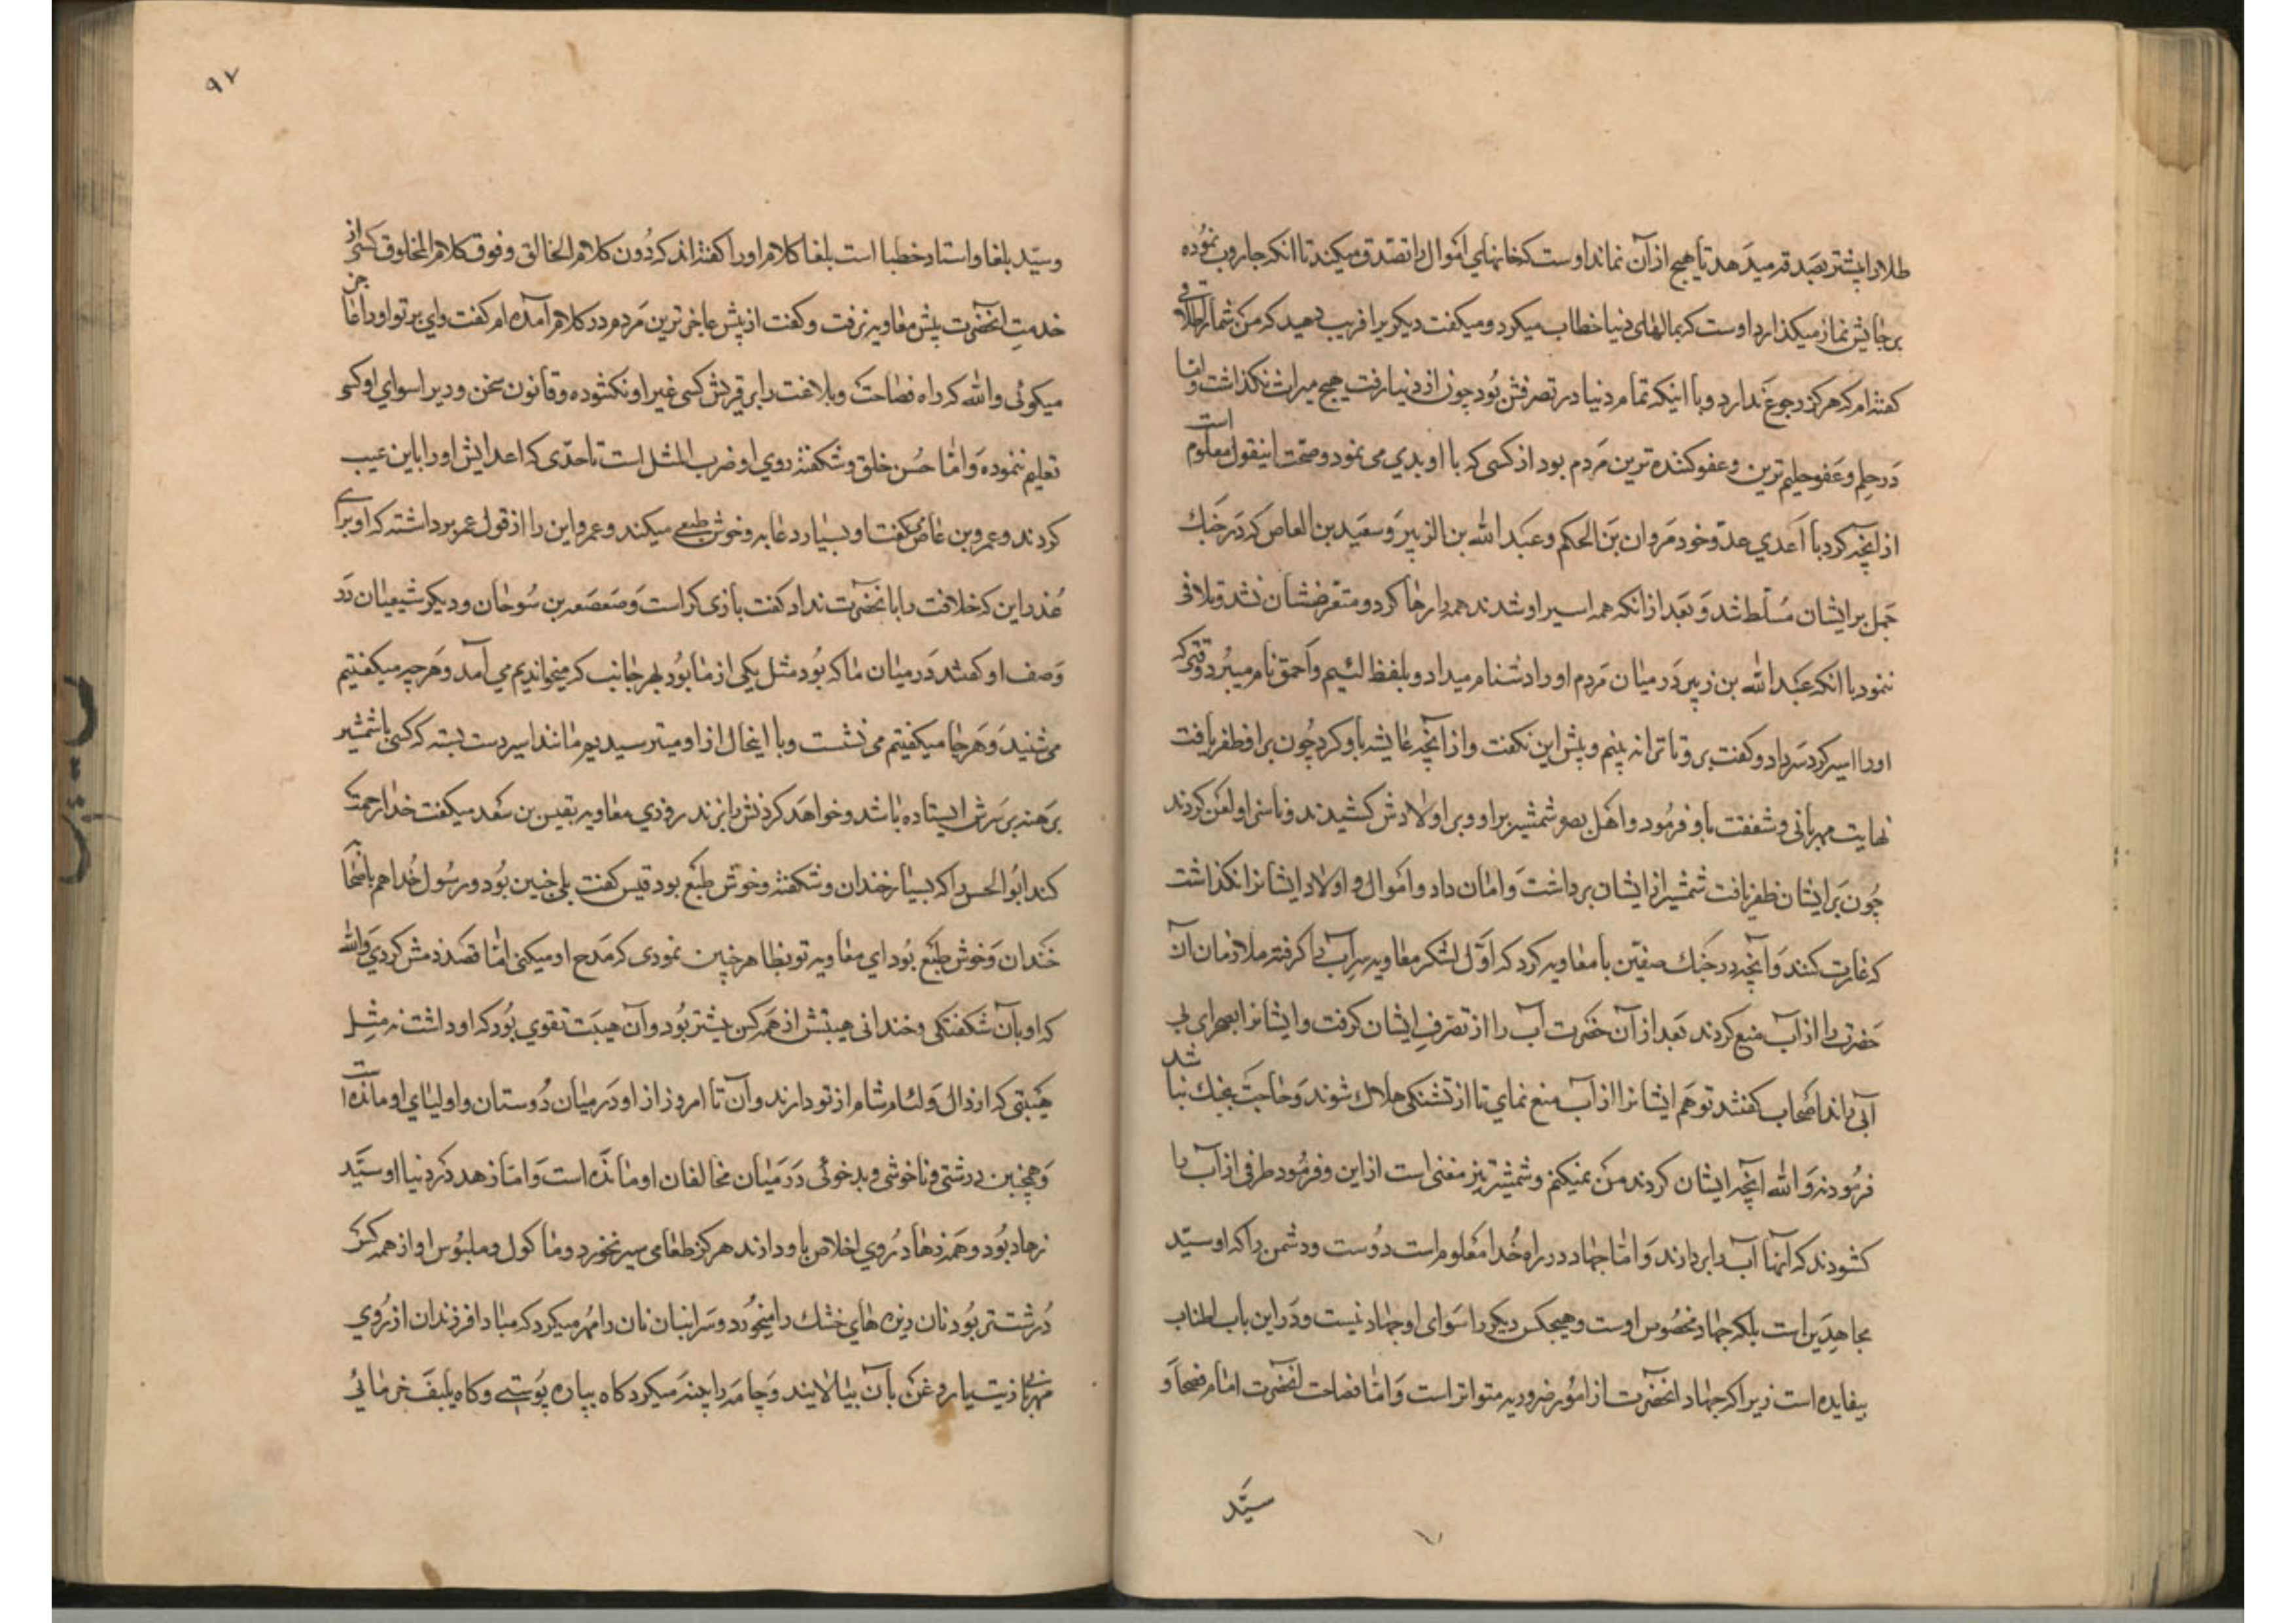 طلا و اپشتر بصدقه میدهد تا هیچ از آن نماند اوست که خانهای اموال را تصدق میکند تا انکه جاروب نموده
بر جایش نماز میکذارد اوست که بمالهای دنیا خطاب میکرد و میکفت دیکریرا فریب دهید که من شما را طلاقی
کفته ام که هرکز رجوع ندارد و با اینکه تمام دنیا در تصرفش بود چون از دنیا رفت هیچ میراث نکذاشت و اما
در حلم و عفو حلیم ترین و عفو کننده ترین مردم بود از کسی که با او بدی می نمود و صحت اینقول معلوم است
از آنچه کرد با اعدی عدو خود مروان بن الحکم و عبد الله بن الزبیر و سعید بن العاص که در جنك
جمل بر ایشان مسلط شد و بعد از انکه همه اسیر او شدند همه را رها کرد و متعرضشان نشد و تلافی
ننمود با انکه عبد الله بن زبیر در میان مردم او را دشنام میداد و بلفظ لئیم و احمق نام میبرد وقتی که
او را اسیر کرد سر داد و کفت برو تا ترا نه بینم و پیش این نکفت و از آنچه عایشه با او کرد چون بر او ظفر یافت
نهایت مهربانی و شفقت با و فرمود و اهل بصره شمشیر بر او و بر اولادش کشیدند و ناسزا و لعن کردند
چون بر ایشان ظفر یافت شمشیر از ایشان برداشت و امان داد و اموال و اولاد ایشانرا نکذاشت
که غارت کنند و آنچه در جنك صفین با معاویه کرد که اول لشکر معاویه سر آب را کرفته ملازمان آن
حضرت را از آب منع کردند بعد از آن حضرت آب را از تصرف ایشان کرفت و ایشانرا بصحرای بی
آبی راند اصحاب کفتند تو هم ایشانرا از آب منع نمای تا از تشنکی هلاك شوند و حاجت بجنك نباشد
فرمود نه والله آنچه ایشان کردند من نمیکنم و شمشیر تیز مغنی است از این و فرمود طرفی از آب را
کشودند که آنها آب را بردارند و اما جهاد در راه خدا معلوم است دوست و دشمن را که او سید
مجاهدین است بلکه جهاد مخصوص اوست و هیچکس دیکر را سوای او جهاد نیست و در این باب اطناب
بیفایده است زیرا که جهاد آنحضرت از امور ضروریه متواتر است و اما فصاحت آنحضرت امام فصحا و
سید
۹۷
و سید بلغا و استاد خطبا است بلغا کلام او را کفته اند که دون کلام الخالق و فوق کلام المخلوق کسی از
خدمت آنحضرت پیش معاویه رفت و کفت از پیش عاجزترین مردم در کلام آمده ام کفت وای بر تو او را عاجز
میکوئی والله که راه فصاحت و بلاغت را بر قریش کسی غیر او نکشوده و قانون سخن و دیر اسوای او کسی
تعلیم ننموده و اما حسن خلق و شکفته روی او ضرب المثل است تا حدی که اعدایش او را باین عیب
کردند و عمرو بن عاص میکفت او بسیار دعابه و خوش طبعی میکند و عمرو این را از قول عمر برداشته که او برای
عذر این که خلافت را بآنحضرت نداد کفت بازی کر است و صعصعه بن سوحان و دیکر شیعیان در
وصف او کفتند در میان ما که بود مثل یکی از ما بود بهر جانب که میخواندیم می آمد و هر چه میکفتیم
می شنید و هر جا میکفتیم می نشست و با اینحال از او میترسیدیم مانند اسیر دست بسته که کسی با شمشیر
برهنه بر سرش ایستاده باشد و خواهد کردنش را بزند روزی معاویه بقیس بن سعد میکفت خدا رحمت
کند ابو الحسن را که بسیار خندان و شکفته و خوش طبع بود قیس کفت بلی چنین بود و رسول خدا هم با صحابه
خندان و خوش طبع بود ای معاویه تو بظاهر چنین نمودی که مدح او میکنی اما قصد ذمش کردی والله
که او بآن شکفتکی و خندانی هیبتش از همه کس بیشتر بود و آن هیبت تقوی بود که او داشت نه مثل
هیبتی که ارذال و لئام شام از تو دارند و آن تا امروز از او در میان دوستان و اولیای او مانده است
و همچنین درشتی و ناخوشی و بدخوئی در میان مخالفان او مانده است و اما زهد در دنیا او سید
زهاد بود و همه زهاد روی اخلاص باو دارند هرکز طعامی سیر نخورد و ماکول و ملبوس او از همه کس
درشتتر بود نان ریزه های خشك را میخورد و سر انبان نان را مهر میکرد که مبادا فرزندان از روی
مهربانی زیت یا روغن بآن بیالایند و جامه را پینه میکرد کاه بپاره پوستی و کاه بلیف خرمائی